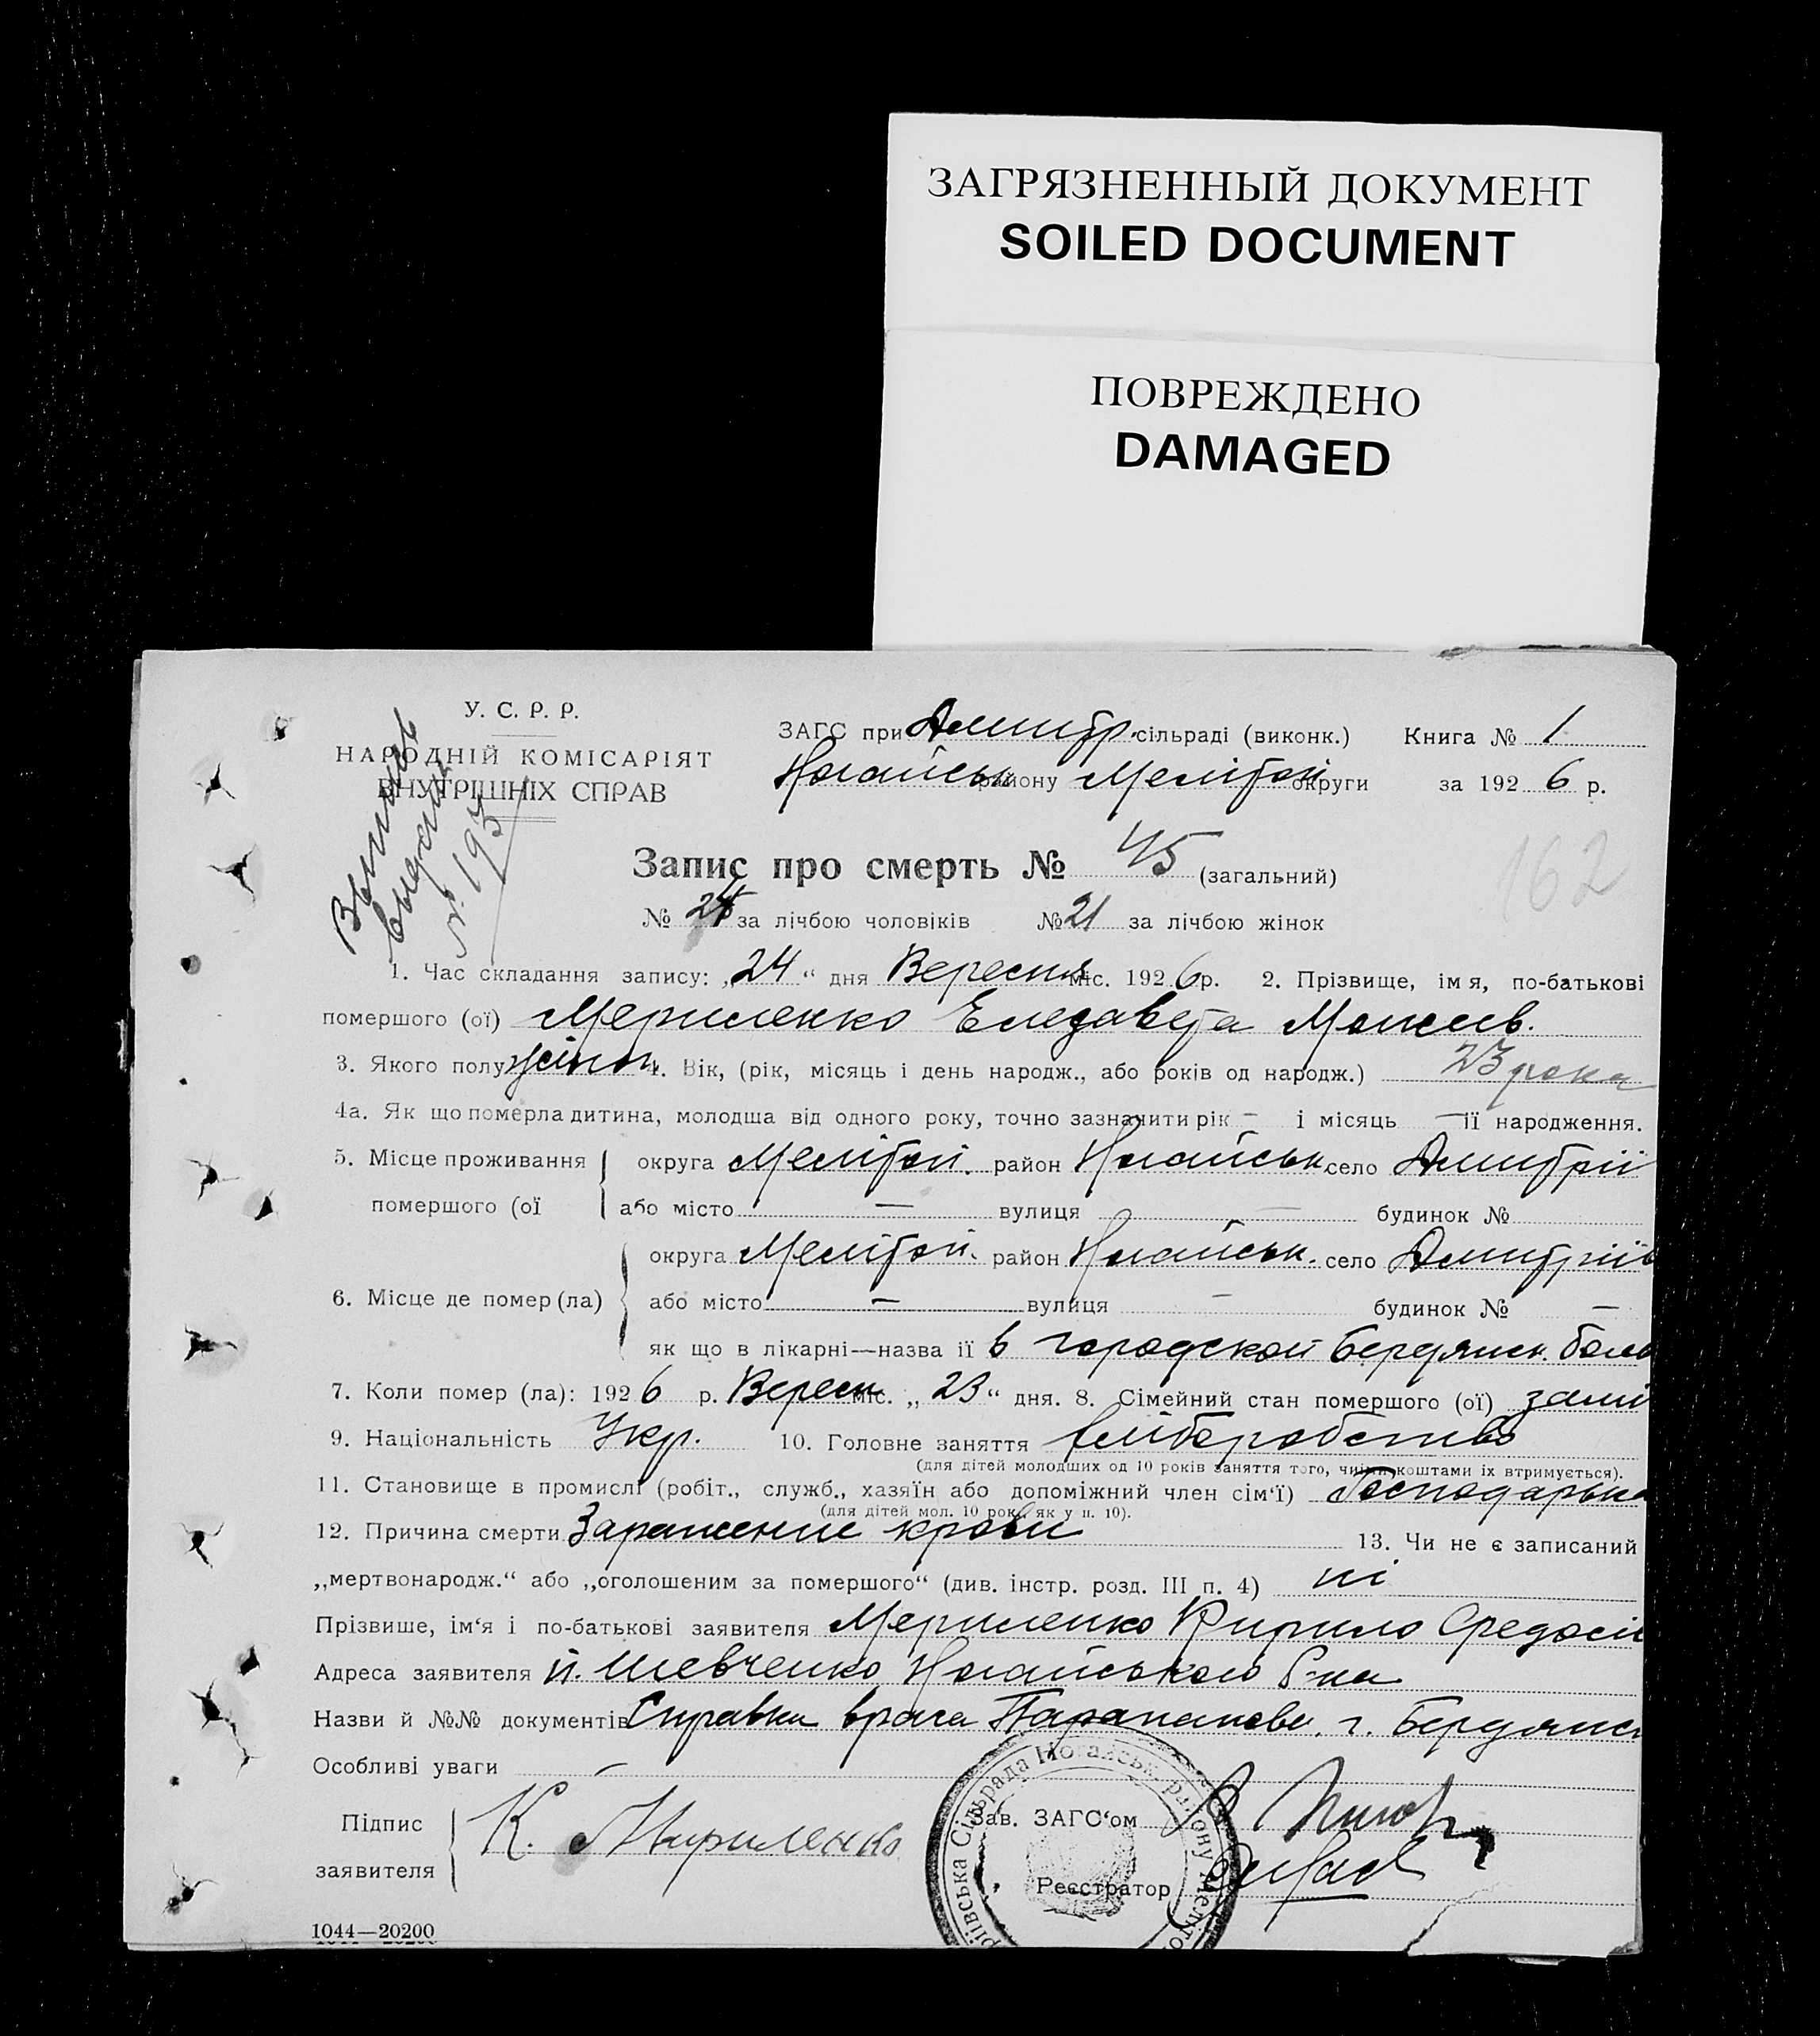 ЗАГРЯЗНЕННЫЙ ДОКУМЕНТ
SOILED DOCUMENT
ПОВРЕЖДЕНО
DAMAGED
У. С. Р. Р.
НАРОДНІЙ КОМІСАРІЯТ
ВНУТРІШНІХ СПРАВ
ЗАГС при Дмитр. сільраді (виконк.) Книга № 1
Ногайськ району Меліт округи за 192 6 р.
Запис про смерть № 45 (загальний)
№ 24 за лічбою чоловіків № 21 за лічбою жінок
162
1. Час складання запису: „24“ дня Вересня міс. 192 6 р. 2. Прізвище, імя, по-батькові
помершого (ої) Елезавета
3. Якого полу жіноч 4. Вік, (рік, місяць і день народж., або років од народж.) 23 рока
4а. Як що померла дитина, молодша від одного року, точно зазначити рік – і місяць – її народження.
5. Місце проживання округа Мелітоп. район Ногайськ. село Дмитрії
помершого (ої або місто — вулиця — будинок №
округа Мелітоп. район Ногайськ. село Дмитріїв
6. Місце де помер (ла) або місто — вулиця — будинок № —
як що в лікарні—назва її в городской Бердянск. боль
7. Коли помер (ла): 192 6 р. Вересн міс. „23“ дня. 8. Сімейний стан помершого (ої) замі
9. Національність Укр. 10. Головне заняття хліборобство
(для дітей молодших од 10 років заняття того, чиїми коштами їх втримується).
11. Становище в промислі (робіт., служб., хазяїн або допоміжний член сім‘ї) Господарька
(для дітей мол. 10 рок., як у п. 10).
12. Причина смерти Заражение крови 13. Чи не є записаний
„мертвонародж.“ або „оголошеним за помершого“ (див. інстр. розд. III п. 4) ні
Прізвише, ім‘я і по-батькові заявителя Кирило Федосі
Адреса заявителя п. Шевченко Ногайського р-на
Назви й №№ документів Справка врача г. Бердянск
Особливі уваги —
Підпис
заявителя
К.
Зав. ЗАГС‘ом
Реєстратор
ріївська Сільрада Ногайськ. району Меліто
1044—20200